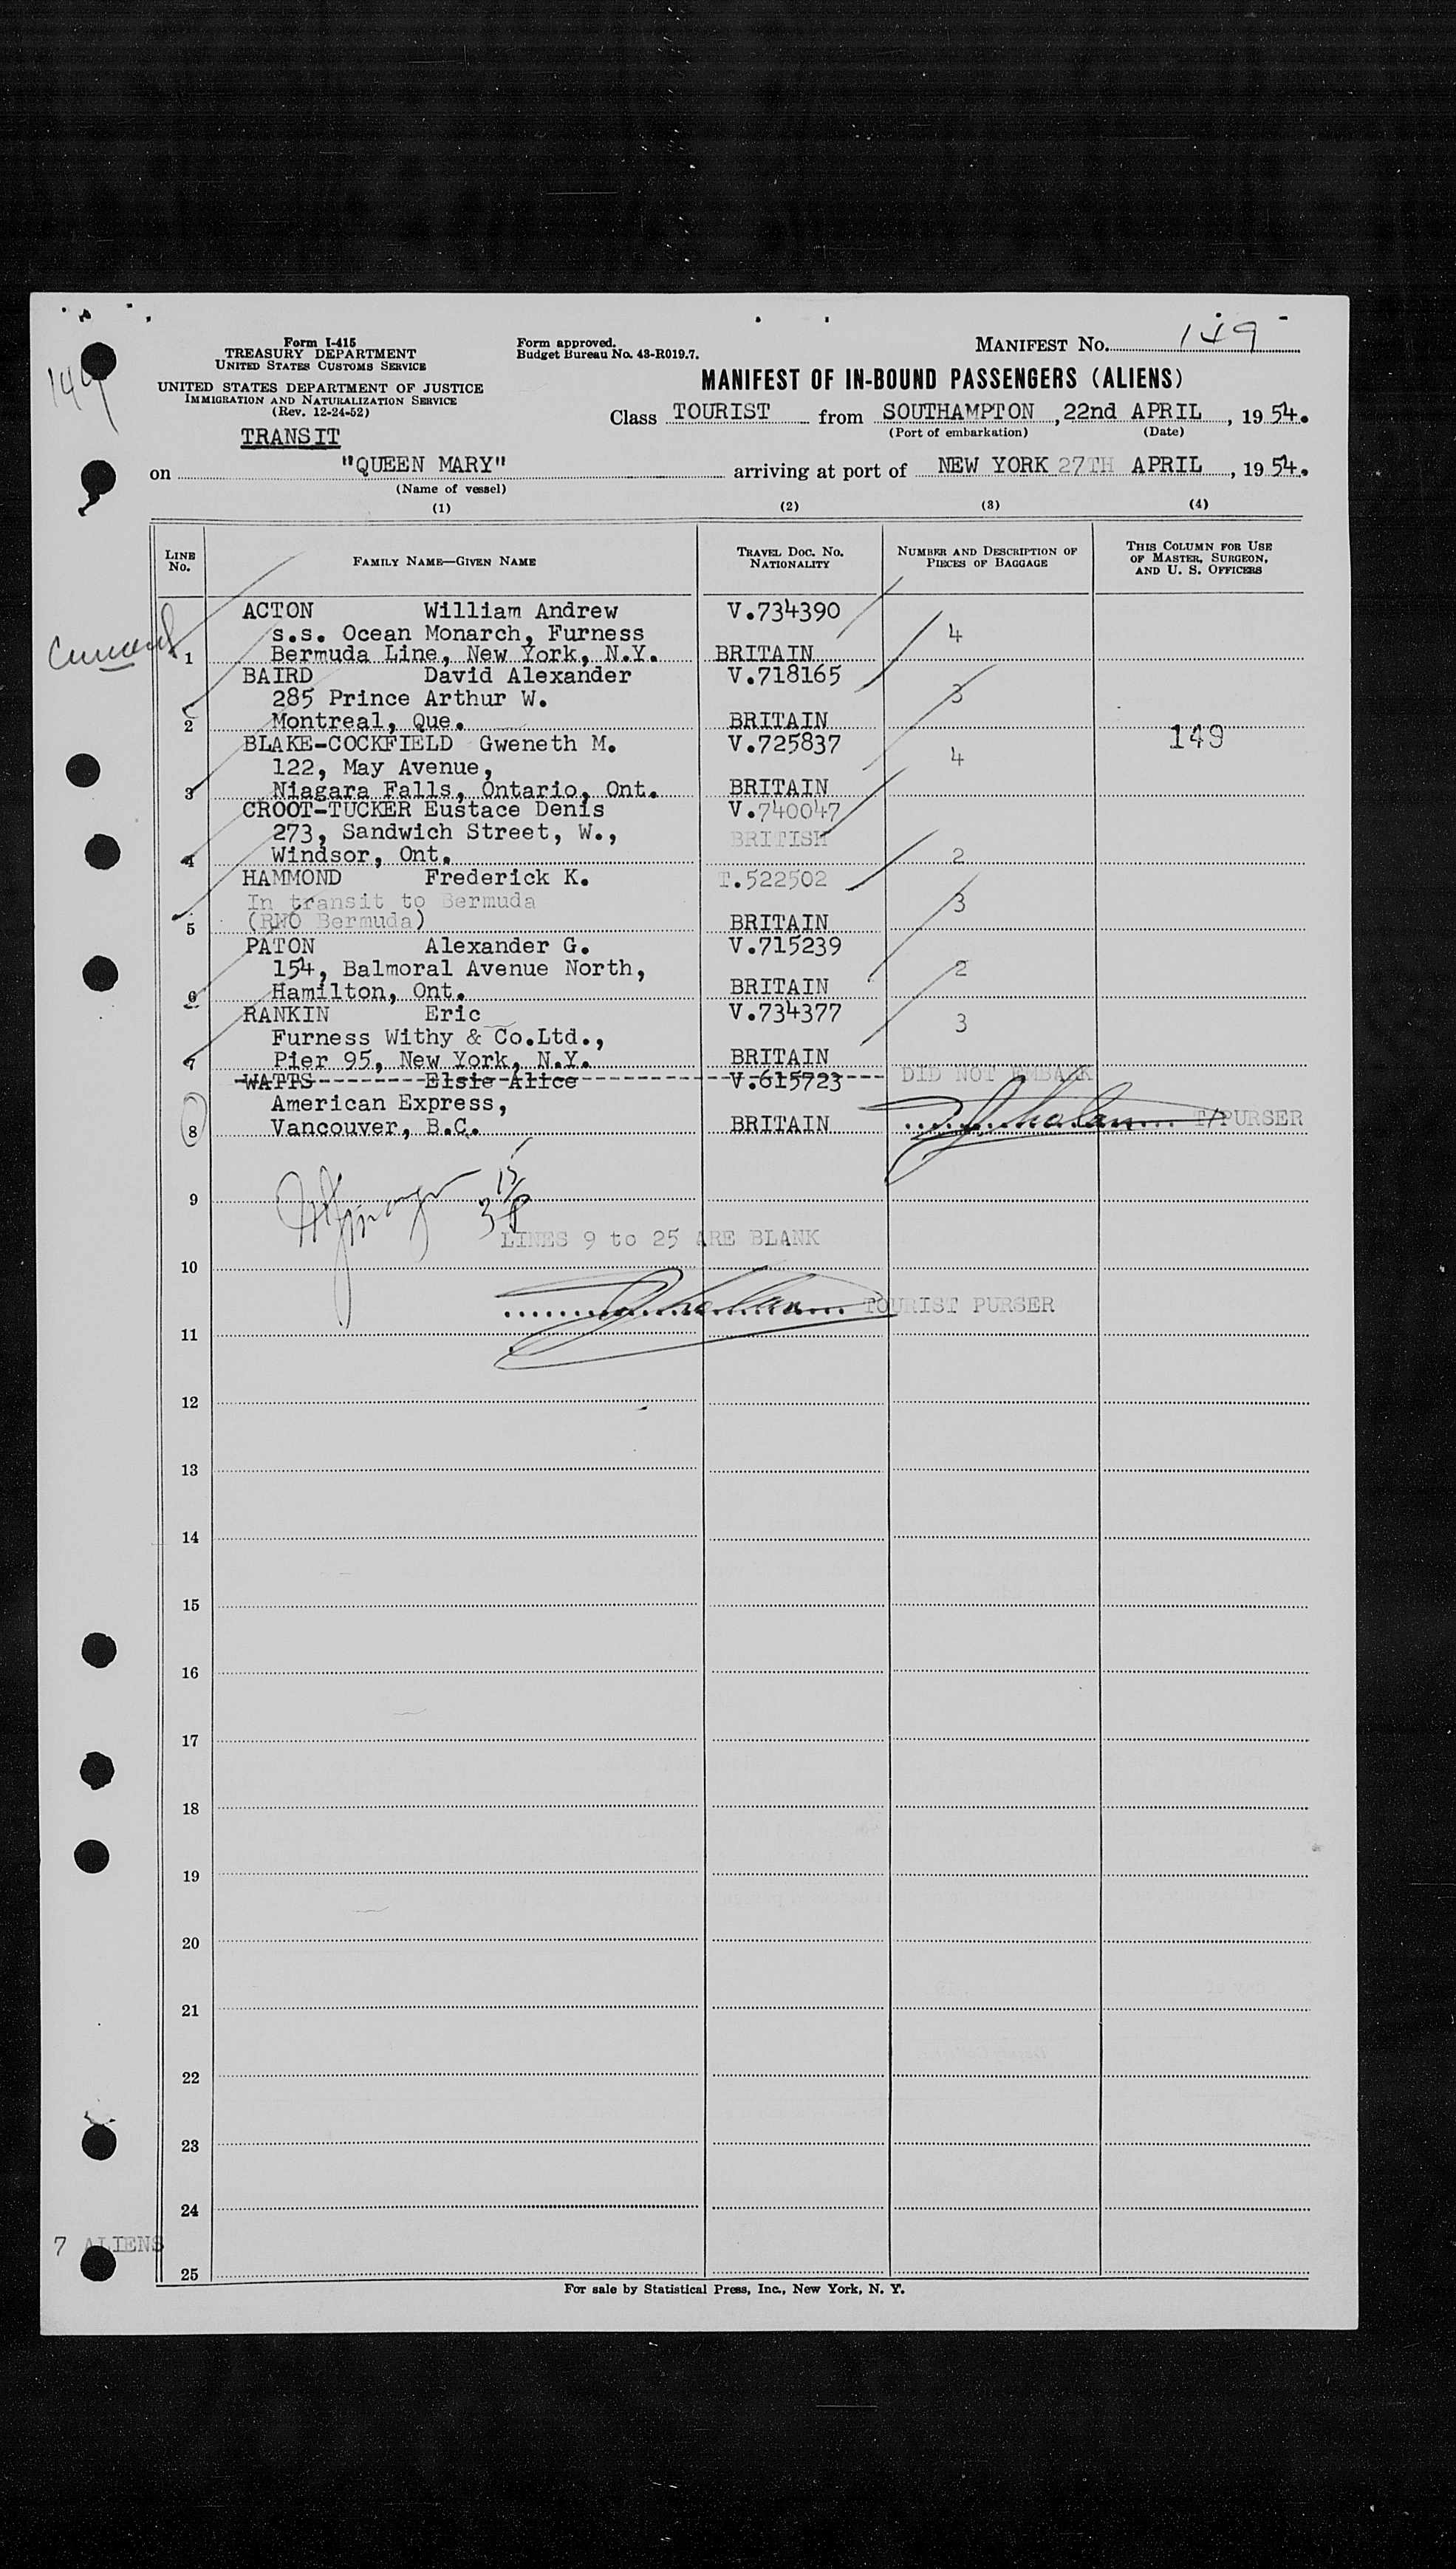 149
Form I-415
TREASURY DEPARTMENT
UNITED STATES CUSTOMS SERVICE
UNITED STATES DEPARTMENT OF JUSTICE
IMMIGRATION AND NATURALIZATION SERVICE
(Rev. 12-24-52)
TRANSIT
Form approved.
Budget Bureau No. 43-R019.7.
MANIFEST No. 149
MANIFEST OF IN-BOUND PASSENGERS (ALIENS)
Class TOURIST from SOUTHAMPTON, 22nd APRIL, 1954.
(Port of embarkation) (Date)
on "QUEEN MARY" arriving at port of NEW YORK 27TH APRIL, 1954.
(Name of vessel)
(1) (2) (3) (4)
LINE No. FAMILY NAME—GIVEN NAME TRAVEL DOC. No. NATIONALITY NUMBER AND DESCRIPTION OF PIECES OF BAGGAGE THIS COLUMN FOR USE OF MASTER, SURGEON, AND U. S. OFFICERS
ACTON William Andrew V.734390
s.s. Ocean Monarch, Furness 4
1 Bermuda Line, New York, N.Y. BRITAIN
BAIRD David Alexander V.718165
285 Prince Arthur W. 3
2 Montreal, Que. BRITAIN
149
BLAKE-COCKFIELD Gweneth M. V.725837
122, May Avenue, 4
3 Niagara Falls, Ontario, Ont. BRITAIN
CROOT-TUCKER Eustace Denis V.740047
273, Sandwich Street, W., BRITISH
4 Windsor, Ont. 2
HAMMOND Frederick K. T.522502
In transit to Bermuda 3
5 (RNO Bermuda) BRITAIN
PATON Alexander G. V.715239
154, Balmoral Avenue North, 2
6 Hamilton, Ont. BRITAIN
RANKIN Eric V.734377
Furness Withy & Co.Ltd., 3
7 Pier 95, New York, N.Y. BRITAIN
WATTS Elsie Alice V.615723 DID NOT EMBARK
American Express,
8 Vancouver, B.C. BRITAIN T/PURSER
9
LINES 9 to 25 ARE BLANK
10
TOURIST PURSER
11
12
13
14
15
16
17
18
19
20
21
22
23
24
7 ALIENS
25
For sale by Statistical Press, Inc., New York, N. Y.